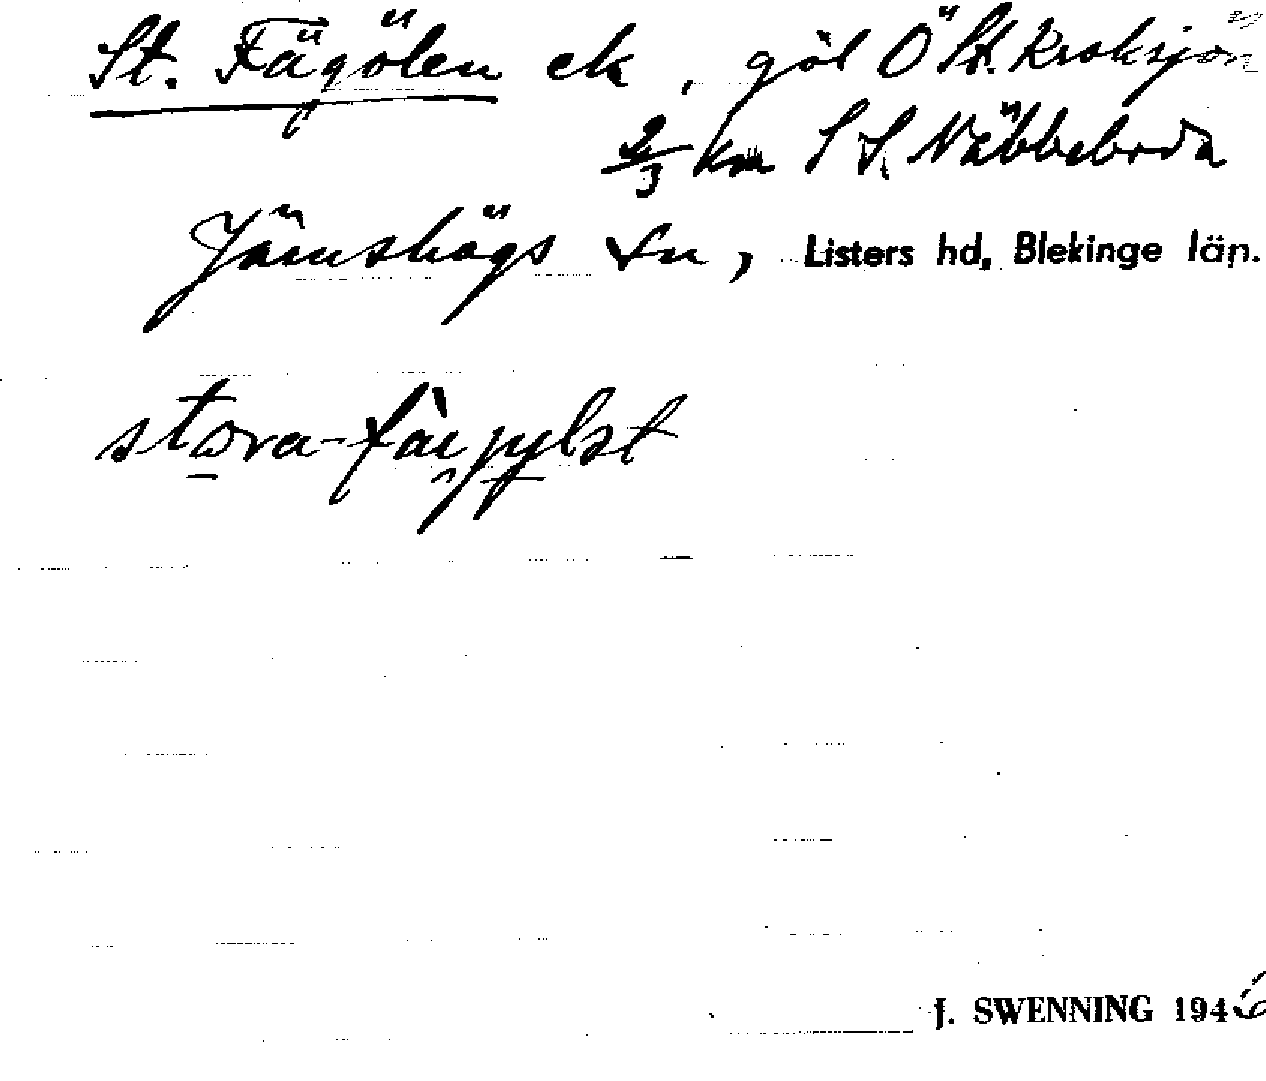 St. Fägölen ek, göl Ö St. Kroksjön
2/3 km S S. Näbbeboda
Jämshögs sn, Listers hd, Blekinge län.
stora-
J. SWENNING 1946